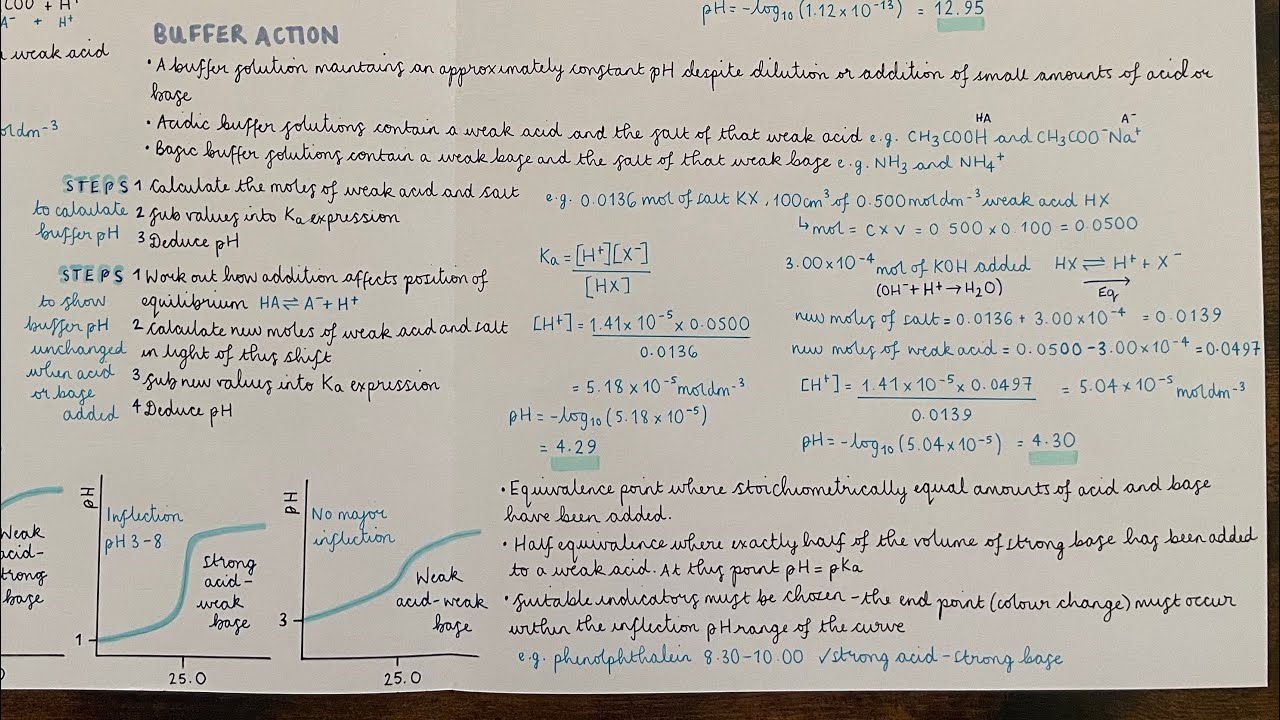 COO + H⁺
A⁻ + H⁺
weak acid
moldm⁻³
pH = -log₁₀(1.12 x 10⁻¹³) = 12.95
BUFFER ACTION
• A buffer solution maintains an approximately constant pH despite dilution or addition of small amounts of acid or
base
HA A⁻
• Acidic buffer solutions contain a weak acid and the salt of that weak acid e.g. CH₃COOH and CH₃COO⁻Na⁺
• Basic buffer solutions contain a weak base and the salt of that weak base e.g. NH₃ and NH₄⁺
STEPS 1 Calculate the moles of weak acid and salt
to calculate 2 Sub values into Ka expression
buffer pH 3 Deduce pH
STEPS 1 Work out how addition affects position of
to show equilibrium HA ⇌ A⁻ + H⁺
buffer pH 2 Calculate new moles of weak acid and salt
unchanged in light of this shift
when acid 3 Sub new values into Ka expression
or base
added 4 Deduce pH
e.g. 0.0136 mol of salt KX, 100cm³ of 0.500moldm⁻³ weak acid HX
↳ mol = C x V = 0.500 x 0.100 = 0.0500
Ka = [H⁺][X⁻]
[HX]
[H⁺] = 1.41 x 10⁻⁵ x 0.0500
0.0136
= 5.18 x 10⁻⁵ moldm⁻³
pH = -log₁₀(5.18 x 10⁻⁵)
= 4.29
3.00 x 10⁻⁴ mol of KOH added HX ⇌ H⁺ + X⁻
(OH⁻ + H⁺ → H₂O) → Eq
new moles of salt = 0.0136 + 3.00 x 10⁻⁴ = 0.0139
new moles of weak acid = 0.0500 - 3.00 x 10⁻⁴ = 0.0497
[H⁺] = 1.41 x 10⁻⁵ x 0.0497 = 5.04 x 10⁻⁵ moldm⁻³
0.0139
pH = -log₁₀(5.04 x 10⁻⁵) = 4.30
Weak
acid-
strong
base
pH
Inflection
pH 3-8
Strong
acid-
weak
base
1
25.0
pH
No major
inflection
Weak
acid-weak
base
3
25.0
• Equivalence point where stoichiometrically equal amounts of acid and base
have been added.
• Half equivalence where exactly half of the volume of strong base has been added
to a weak acid. At this point pH = pKa
• Suitable indicators must be chosen - the end point (colour change) must occur
within the inflection pH range of the curve
e.g. phenolphthalein 8.30-10.00 ✓ strong acid-strong base